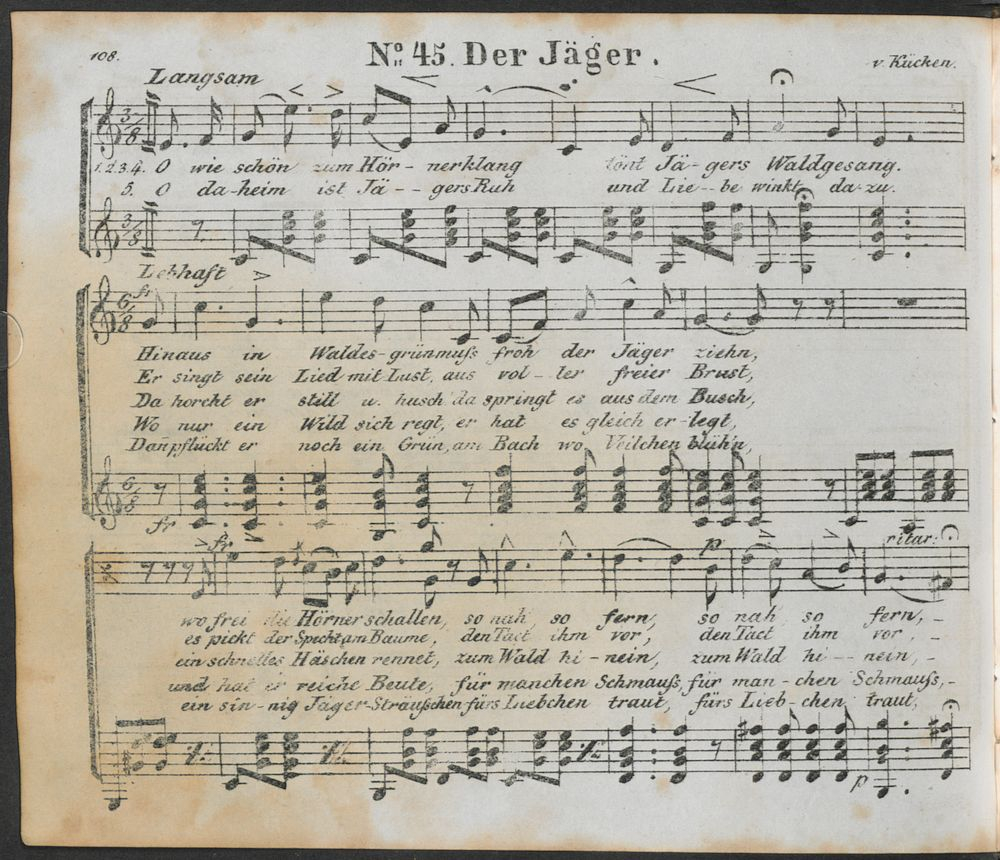 108.
No. 45. Der Jäger.
v. Kücken.
Langsam
3/8
1. 2. 3. 4. O wie schön zum Hör - nerklang tönt Jä - gers Waldgesang.
5. O da-heim ist Jä - - gers Ruh und Lie - - be winkt da-zu.
3/8
Lebhaft
fr
6/8
Hinaus in Waldes-grünmuſs froh der Jäger ziehn,
Er singt sein Lied mit Lust, aus vol - ler freier Brust,
Da horcht er still u. husch da springt es aus dem Busch,
Wo nur ein Wild sich regt, er hat es gleich er-legt,
Dan̄ pflückt er noch ein Grün, am Bach wo Veilchen blüh'n,
6/8
fr
fr
p
ritar:
wo frei die Hörner schallen, so nah, so fern, so nah so fern, -
es pickt der Specht am Baume, den Tact ihm vor, den Tact ihm vor, -
ein schnelles Häschen rennet, zum Wald hi - nein, zum Wald hi - - nein, -
und hat er reiche Beute, für manchen Schmauſs, für man - chen Schmauſs, -
ein sin - nig Jäger-Sträuſschen fürs Liebchen traut, fürs Lieb - chen traut,
p